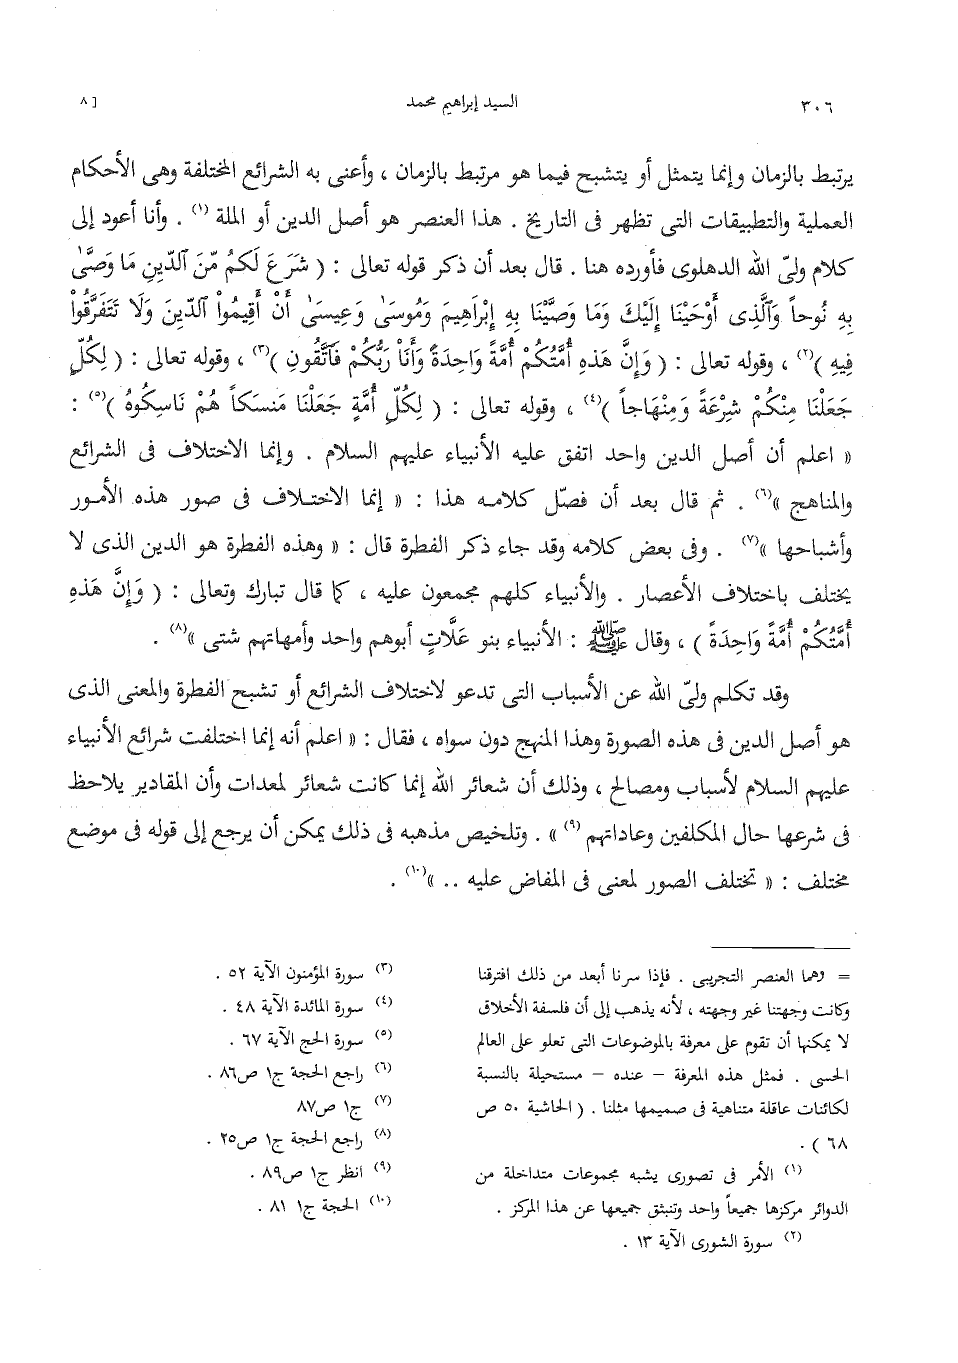 ٣٠٦ السيد إبراهيم محمد [ ٨
يرتبط بالزمان وإنما يتمثل أو يتشبح فيما هو مرتبط بالزمان ، وأعنى به الشرائع المختلفة وهى الأحكام
العملية والتطبيقات التى تظهر فى التاريخ . هذا العنصر هو أصل الدين أو الملة (١) . وأنا أعود إلى
كلام ولىّ الله الدهلوى فأورده هنا . قال بعد أن ذكر قوله تعالى : ( شَرَعَ لَكُم مِّنَ ٱلدِّينِ مَا وَصَّىٰ
بِهِ نُوحاً وَٱلَّذِى أَوْحَيْنَا إِلَيْكَ وَمَا وَصَّيْنَا بِهِ إِبْرَاهِيمَ وَمُوسَىٰ وَعِيسَىٰ أَنْ أَقِيمُواْ ٱلدِّينَ وَلَا تَتَفَرَّقُواْ
فِيهِ )(٢) ، وقوله تعالى : ( وَإِنَّ هَذِهِ أُمَّتُكُمْ أُمَّةً وَاحِدَةً وَأَنَاْ رَبُّكُمْ فَاتَّقُونِ )(٣) ، وقوله تعالى : ( لِكُلٍّ
جَعَلْنَا مِنْكُمْ شِرْعَةً وَمِنْهَاجاً )(٤) ، وقوله تعالى : ( لِكُلِّ أُمَّةٍ جَعَلْنَا مَنسَكاً هُمْ نَاسِكُوهُ )(٥) :
« اعلم أن أصل الدين واحد اتفق عليه الأنبياء عليهم السلام . وإنما الاختلاف فى الشرائع
والمناهج »(٦) . ثم قال بعد أن فصّل كلامه هذا : « إنما الاختلاف فى صور هذه الأمور
وأشباحها »(٧) . وفى بعض كلامه وقد جاء ذكر الفطرة قال : « وهذه الفطرة هو الدين الذى لا
يختلف باختلاف الأعصار . والأنبياء كلهم مجمعون عليه ، كما قال تبارك وتعالى : ( وَإِنَّ هَذِهِ
أُمَّتُكُمْ أُمَّةً وَاحِدَةً ) ، وقال ﷺ : الأنبياء بنو عَلَّاتٍ أبوهم واحد وأمهاتهم شتى »(٨) .
وقد تكلم ولىّ الله عن الأسباب التى تدعو لاختلاف الشرائع أو تشبح الفطرة والمعنى الذى
هو أصل الدين فى هذه الصورة وهذا المنهج دون سواه ، فقال : « اعلم أنه إنما اختلفت شرائع الأنبياء
عليهم السلام لأسباب ومصالح ، وذلك أن شعائر الله إنما كانت شعائر لمعدات وأن المقادير يلاحظ
فى شرعها حال المكلفين وعاداتهم (٩) » . وتلخيص مذهبه فى ذلك يمكن أن يرجع إلى قوله فى موضع
مختلف : « تختلف الصور لمعنى فى المفاض عليه .. »(١٠) .
= وهما العنصر التجريبى . فإذا سرنا أبعد من ذلك افترقنا
وكانت وجهتنا غير وجهته ، لأنه يذهب إلى أن فلسفة الأخلاق
لا يمكنها أن تقوم على معرفة بالموضوعات التى تعلو على العالم
الحسى . فمثل هذه المعرفة – عنده – مستحيلة بالنسبة
لكائنات عاقلة متناهية فى صميمها مثلنا . ( الحاشية ٥٠ ص
٦٨ ) .
(١) الأمر فى تصورى يشبه مجموعات متداخلة من
الدوائر مركزها جميعاً واحد وتنبثق جميعها عن هذا المركز .
(٢) سورة الشورى الآية ١٣ .
(٣) سورة المؤمنون الآية ٥٢ .
(٤) سورة المائدة الآية ٤٨ .
(٥) سورة الحج الآية ٦٧ .
(٦) راجع الحجة ج١ ص٨٦ .
(٧) ج١ ص٨٧
(٨) راجع الحجة ج١ ص٢٥ .
(٩) انظر ج١ ص٨٩ .
(١٠) الحجة ج١ ٨١ .